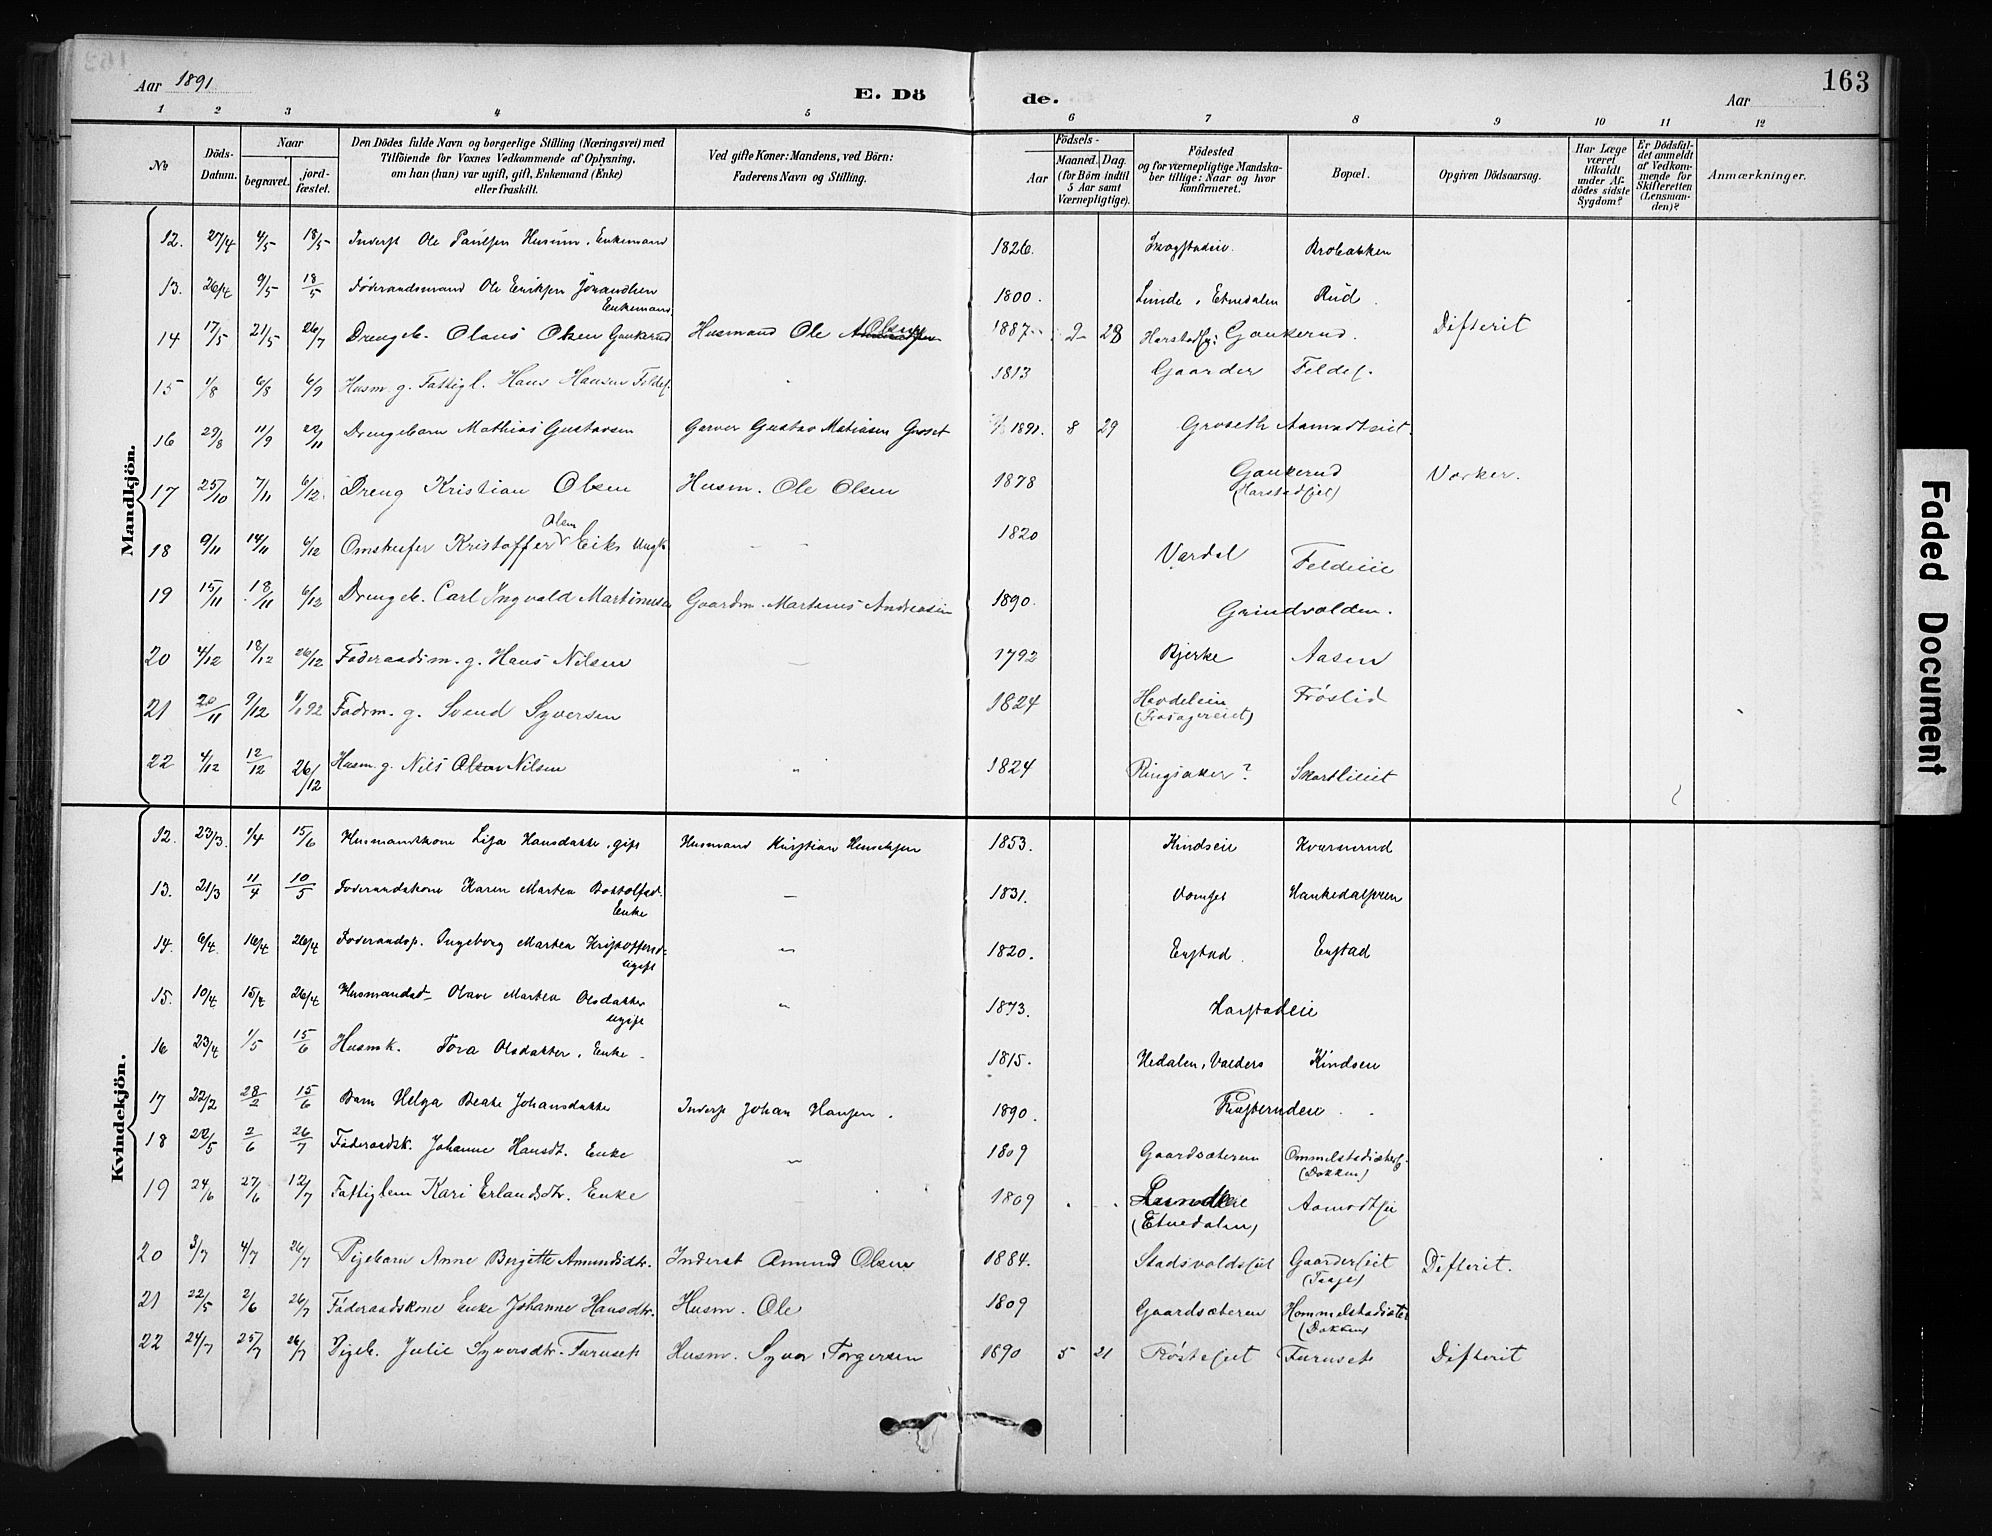 163
Aar 1891
E. Dö
de.
Aar
1 2 3 4 5 6 7 8 9 10 11 12
No
Döds-Datum.
Naar
begravet.
jord-fæstet.
Den Dödes fulde Navn og borgerlige Stilling (Næringsvei) med
Tilföiende for Voxnes Vedkommende af Oplysning,
om han (hun) var ugift, gift, Enkemand (Enke)
eller fraskilt.
Ved gifte Koner: Mandens, ved Børn:
Faderens Navn og Stilling.
Födsels-
Aar
Maaned. Dag.
(for Börn indtil
5 Aar samt
Værnepligtige).
Födested
og for værnepligtige Mandska-
ber tillige: Naar og hvor
konfirmeret.
Bopæl.
Opgiven Dödsaarsag.
Har Læge
været
tilkaldt
under Af-
dödes sidste
Sygdom?
Er Dödsfal-
det anmeldt
af Vedkom-
mende for
Skifteretten
(Lensman-
den)?
Anmærkninger.
Mandkjön.
12. 27/4 4/5 18/5 Inderst Ole Paulsen Husum, Enkemand 1826. Skogstadeie. Brobakken
13. 26/4 9/5 18/5 Föderaadsmand Ole Eriksen Enkemand 1800. Lunde, Etnedalen Rud.
14 17/5 21/5 26/7 Drengeb. Olaus Olsen Gaukerud Husmand Ole Olsen 1887 2 28 Gaukerud. Difterit
15 1/8 6/8 6/9 Husm. g. Fattigl. Hans Hansen 1813 Gaarder
16 29/8 11/9 22/11 Drengebarn Mathias Gustavsen Garver Gustav Matiasen Groset 1891. 8 29 Groseth Aamodtseiet.
17 25/10 7/11 6/12. Dreng Kristian Olsen Husm. Ole Olsen 1878 Gaukerud (Harstadeiet) Værker.
18 9/11 14/11 6/12 Kristoffer Olsen Eiks Ungk. 1820 Vardal Feldeie
19 15/11 18/11 6/12 Drengeb. Carl Ingvald Martinusen Gaardm. Martinus Andreasen 1890. Grindvolden.
20 4/12 18/12 26/12 Föderaadsm. g. Hans Nilsen 1792 Bjerke Aasen
21 20/11 9/12 92 Fødrm. g. Svend Syversen 1824 Frøslid
22 4/12 12/12 26/12 Husm. g. Nils Nilsen 1824 Ringsaker?
Kvindekjön.
12. 23/3. 1/4 15/6 Husmandskone Lisa Hansdatter, gift Husmand Kristian Henriksen 1853. Kindseie Kværnerud
13. 21/3 11/4 10/5 Föderaadskone Karen Marten Bottolfsd. Enke 1831.
14. 6/4 16/4 26/4 Föderaadsp. Ingeborg Marten Kristoffersd. ugift 1820. Enstad. Enstad
15. 10/4 15/4 26/4 Husmandsd. Olave Marten Olsdatter ugift 1873. Harstadeie
16 23/4 1/5 15/6 Husmk. Tora Olsdatter, Enke. 1815. Hedalen, Valders Kindseie
17 22/2 28/2 15/6 Barn Helga Beate Johansdatter Inderst Johan Hansen. 1890.
18 22/5 2/6 26/7 Föderaadsk. Johanne Hansdt. Enke 1809 Gaardsæteren (Dokken)
19 24/6 27/6 12/7 Fattiglem Kari Erlandsdtr. Enke 1809 (Etnedalen)
20 3/7 4/7 26/7 Pigebarn Anne Bergitte Amundsdtr. Inderst Amund Olsen 1884. Gaardereiet Difterit.
21 22/5 2/6 26/7 Föderaadskone Enke Johanne Hansdtr. Husm. Ole 1809 Gaardsæteren (Dokken)
22 24/7 25/7 26/7 Pigeb. Julie Syversdtr. Furuset Husm. Syver Torgersen 1890 5 21 Furuset Difterit
Faded Document